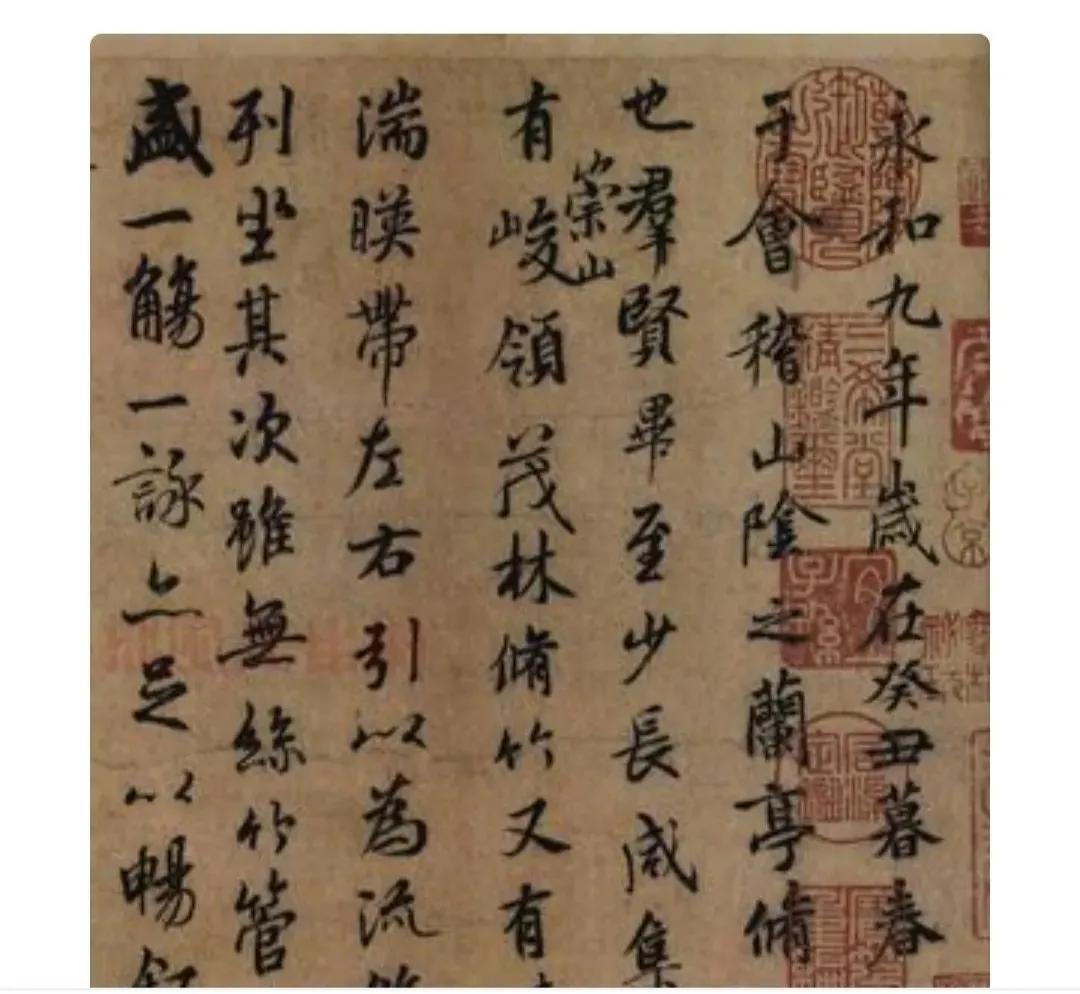 永和九年歲在癸丑暮春
于會稽山陰之蘭亭脩
也羣賢畢至少長咸集
有崇山峻領茂林脩竹又有
湍暎帶左右引以為流
列坐其次雖無絲竹管
盛一觴一詠亦足以暢
三希堂精鑑璽
宜子孫